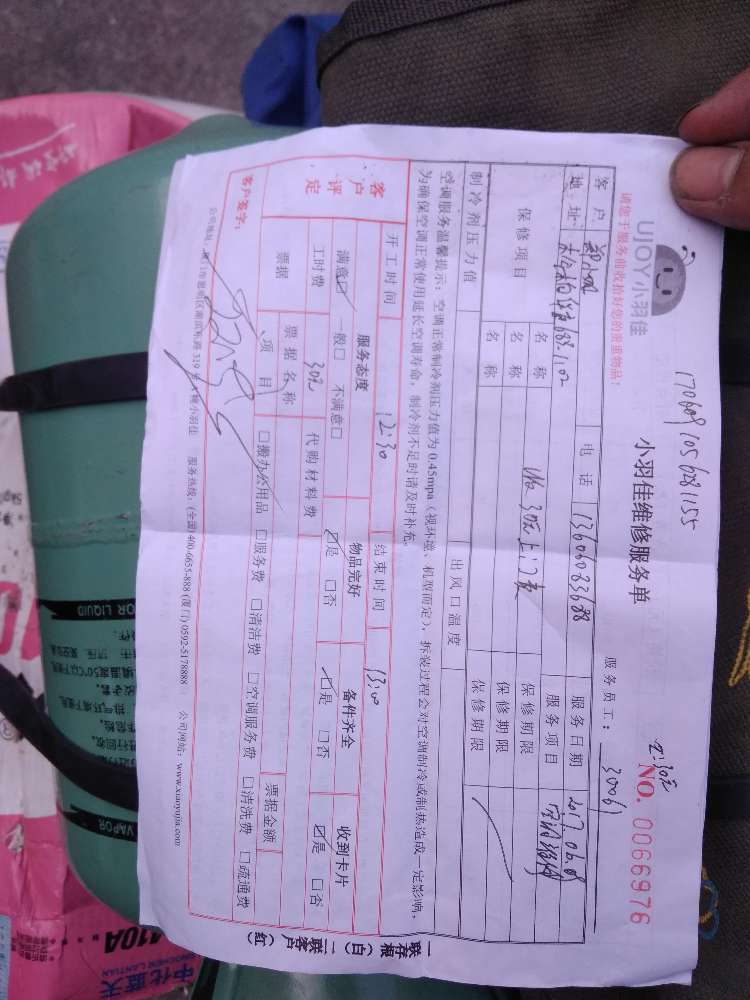 UJOY小羽佳
1706091056281155
小羽佳维修服务单
NO. 0066976
请您于服务前收拾好您的贵重物品!
服务员工: 30061
客户
电话 13606083688
服务日期 2017.06.09
地址
服务项目 空调维修
保修项目
名称
保修期限
名称
保修期限
名称
保修期限
制冷剂压力值
出风口温度
空调服务温馨提示:空调正常制冷剂压力值为0.45mpa(视环境、机型而定),拆装过程会对空调制冷或制热造成一定影响,
为确保空调正常使用延长空调寿命,制冷剂不足时请及时补充。
开工时间 12:30
结束时间 13:00
客户评定
服务态度
物品完好
备件齐全
收到卡片
满意☑ 一般□ 不满意□
☑是 □否
☑是 □否
☑是 □否
工时费 30元
代购材料费
票据
票据名称
票据金额
项目
□搬办公用品 □服务费 □清洁费 □空调服务费 □清洗费 □疏通费
客户签字:
服务热线:(全国)400-6655-888(厦门)0592-5178888
公司网站:www.xiaoyujia.com
一联存根(白)二联客户(红)
VAPOR
OR LIQUID
410A
中化蓝天
SINOCHEM LANTIAN